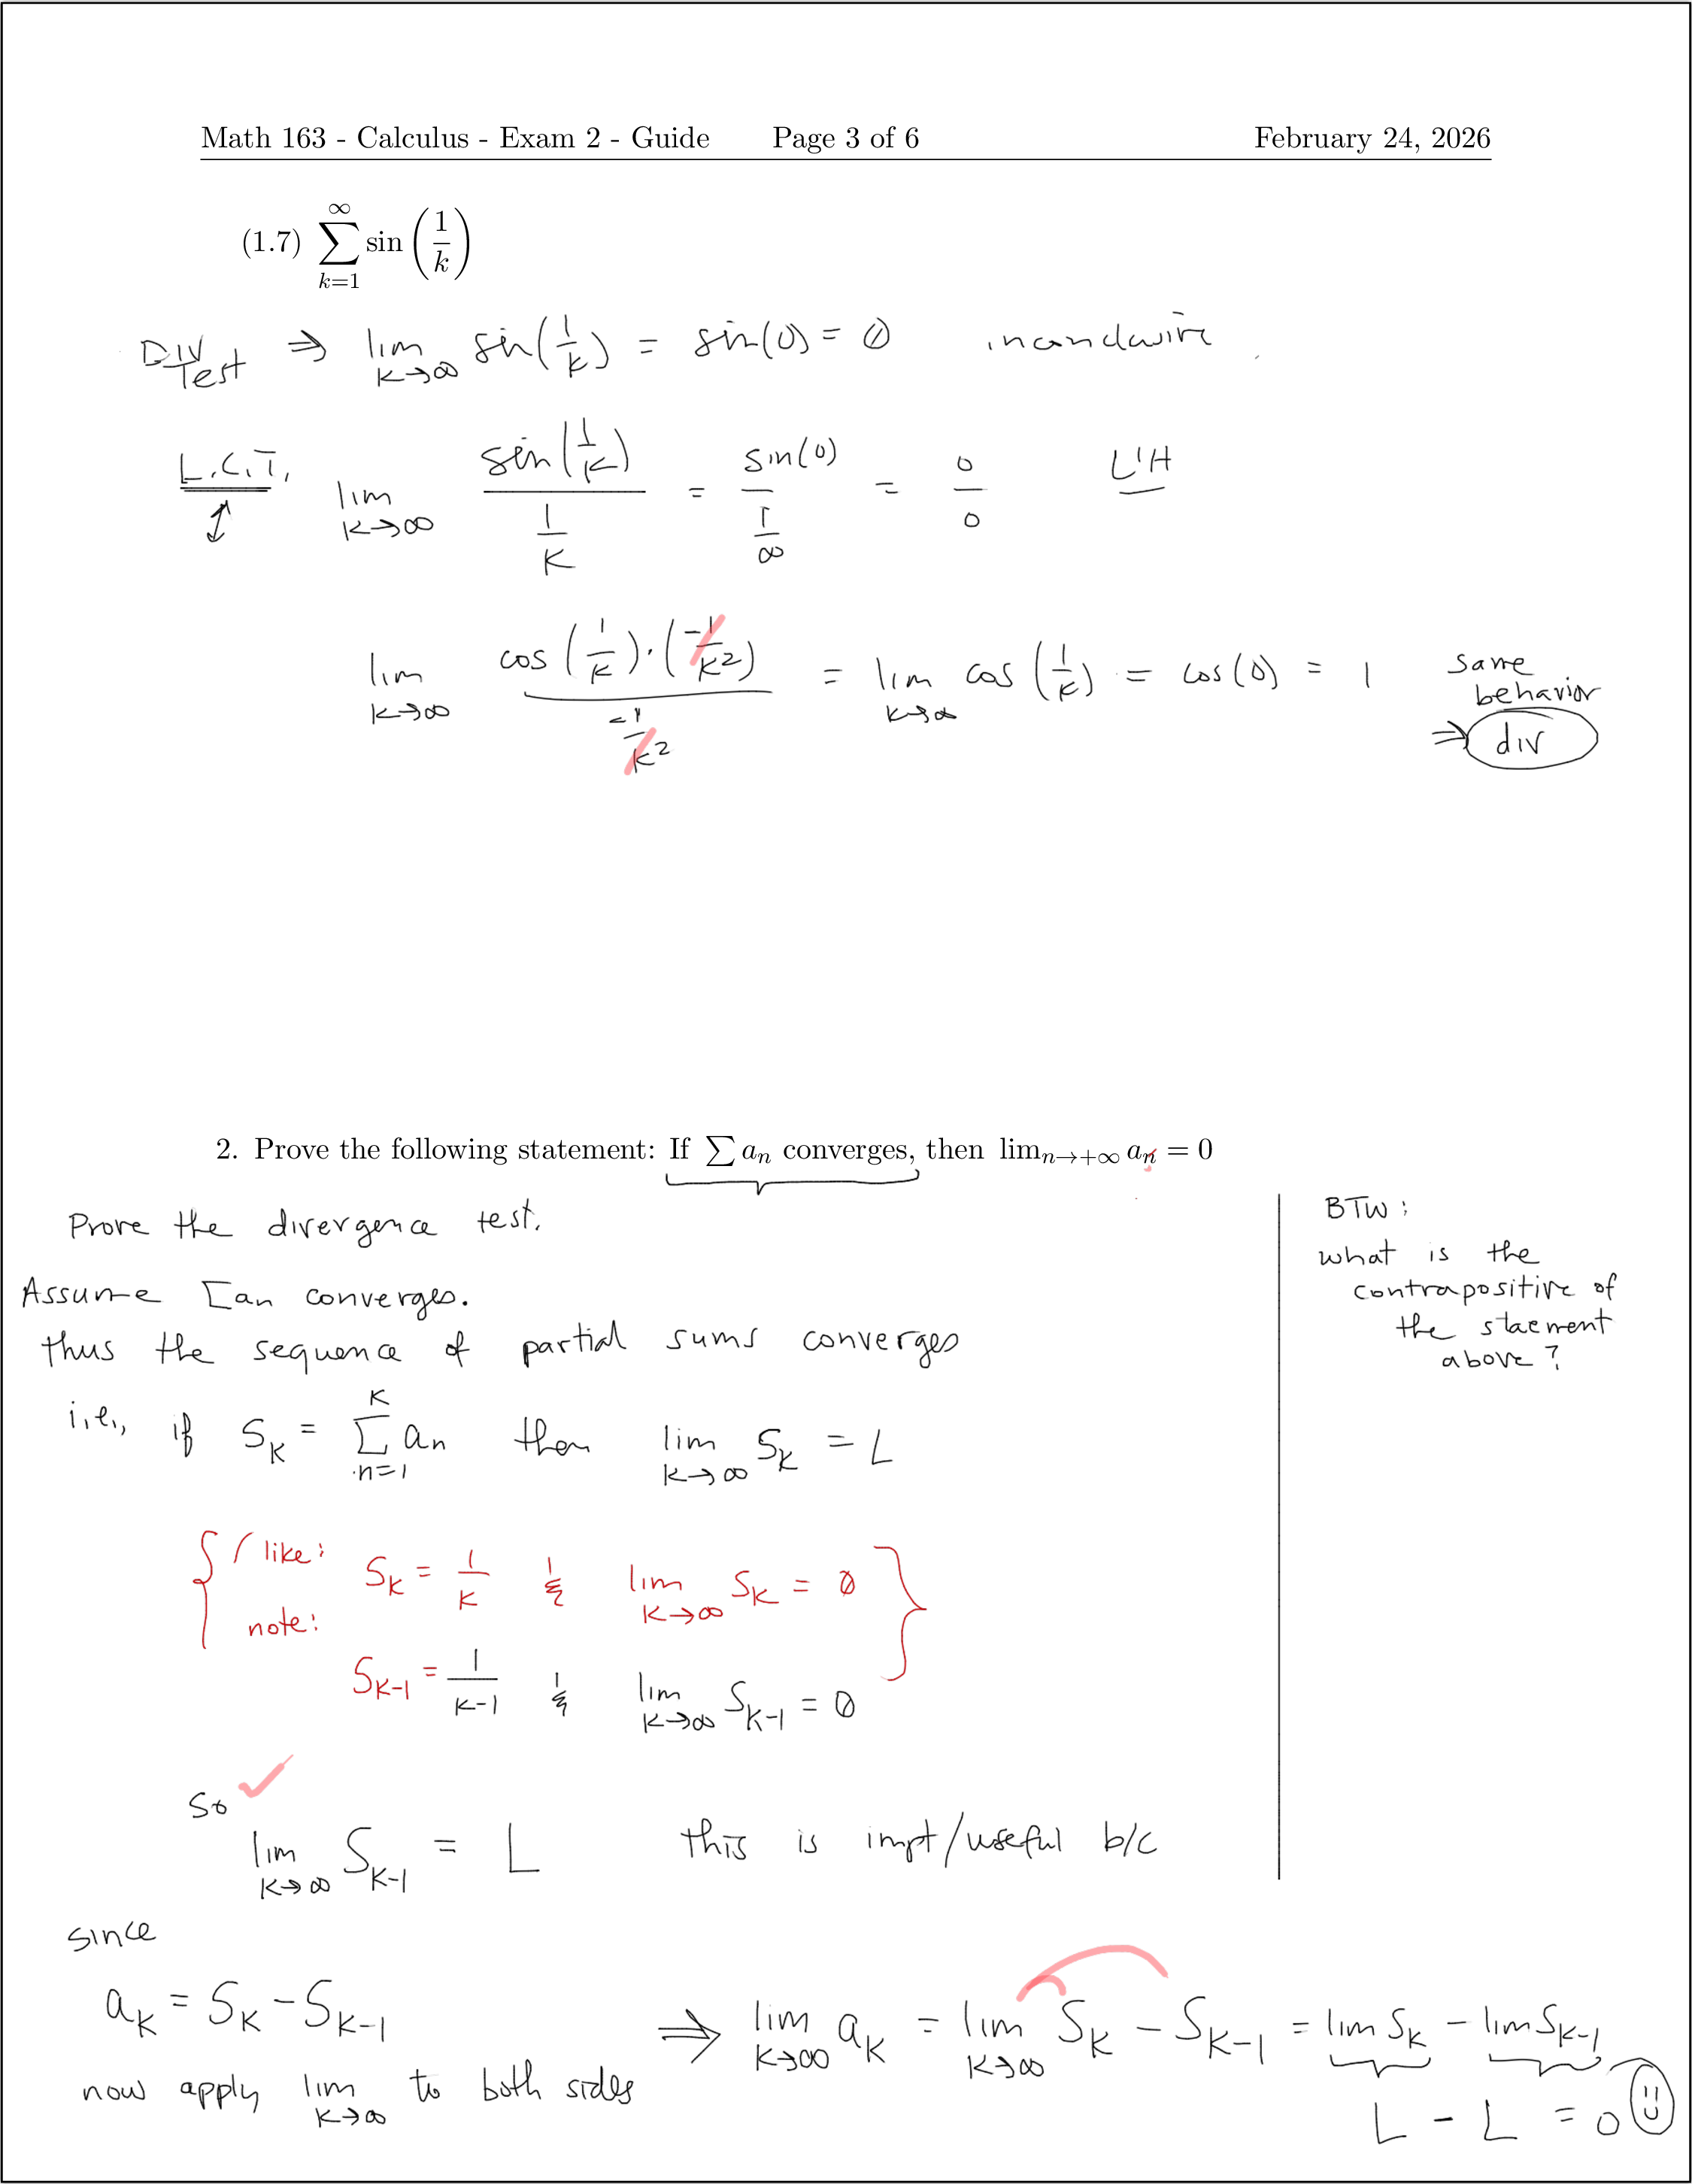 Math 163 - Calculus - Exam 2 - Guide Page 3 of 6 February 24, 2026
(1.7) ∑_{k=1}^{∞} sin(1/k)
Div Test ⇒ lim_{k→∞} sin(1/k) = sin(0) = 0 inconclusive
L.C.T. lim_{k→∞} sin(1/k) / (1/k) = sin(0) / (1/∞) = 0/0 L'H
↕
lim_{k→∞} cos(1/k)·(-1/k²) / (-1/k²) = lim_{k→∞} cos(1/k) = cos(0) = 1 same behavior
⇒ div
2. Prove the following statement: If ∑ a_n converges, then lim_{n→+∞} a_n = 0
Prove the divergence test.
Assume ∑an converges.
thus the sequence of partial sums converges
i.e., if S_k = ∑_{n=1}^{k} a_n then lim_{k→∞} S_k = L
like: S_k = 1/k & lim_{k→∞} S_k = 0
note:
S_{k-1} = 1/(k-1) & lim_{k→∞} S_{k-1} = 0
So ✓
lim_{k→∞} S_{k-1} = L this is impt/useful b/c
since
a_k = S_k - S_{k-1}
now apply lim_{k→∞} to both sides
⇒ lim_{k→∞} a_k = lim_{k→∞} S_k - S_{k-1} = lim S_k - lim S_{k-1}
L - L = 0
BTW:
what is the
contrapositive of
the staement
above?